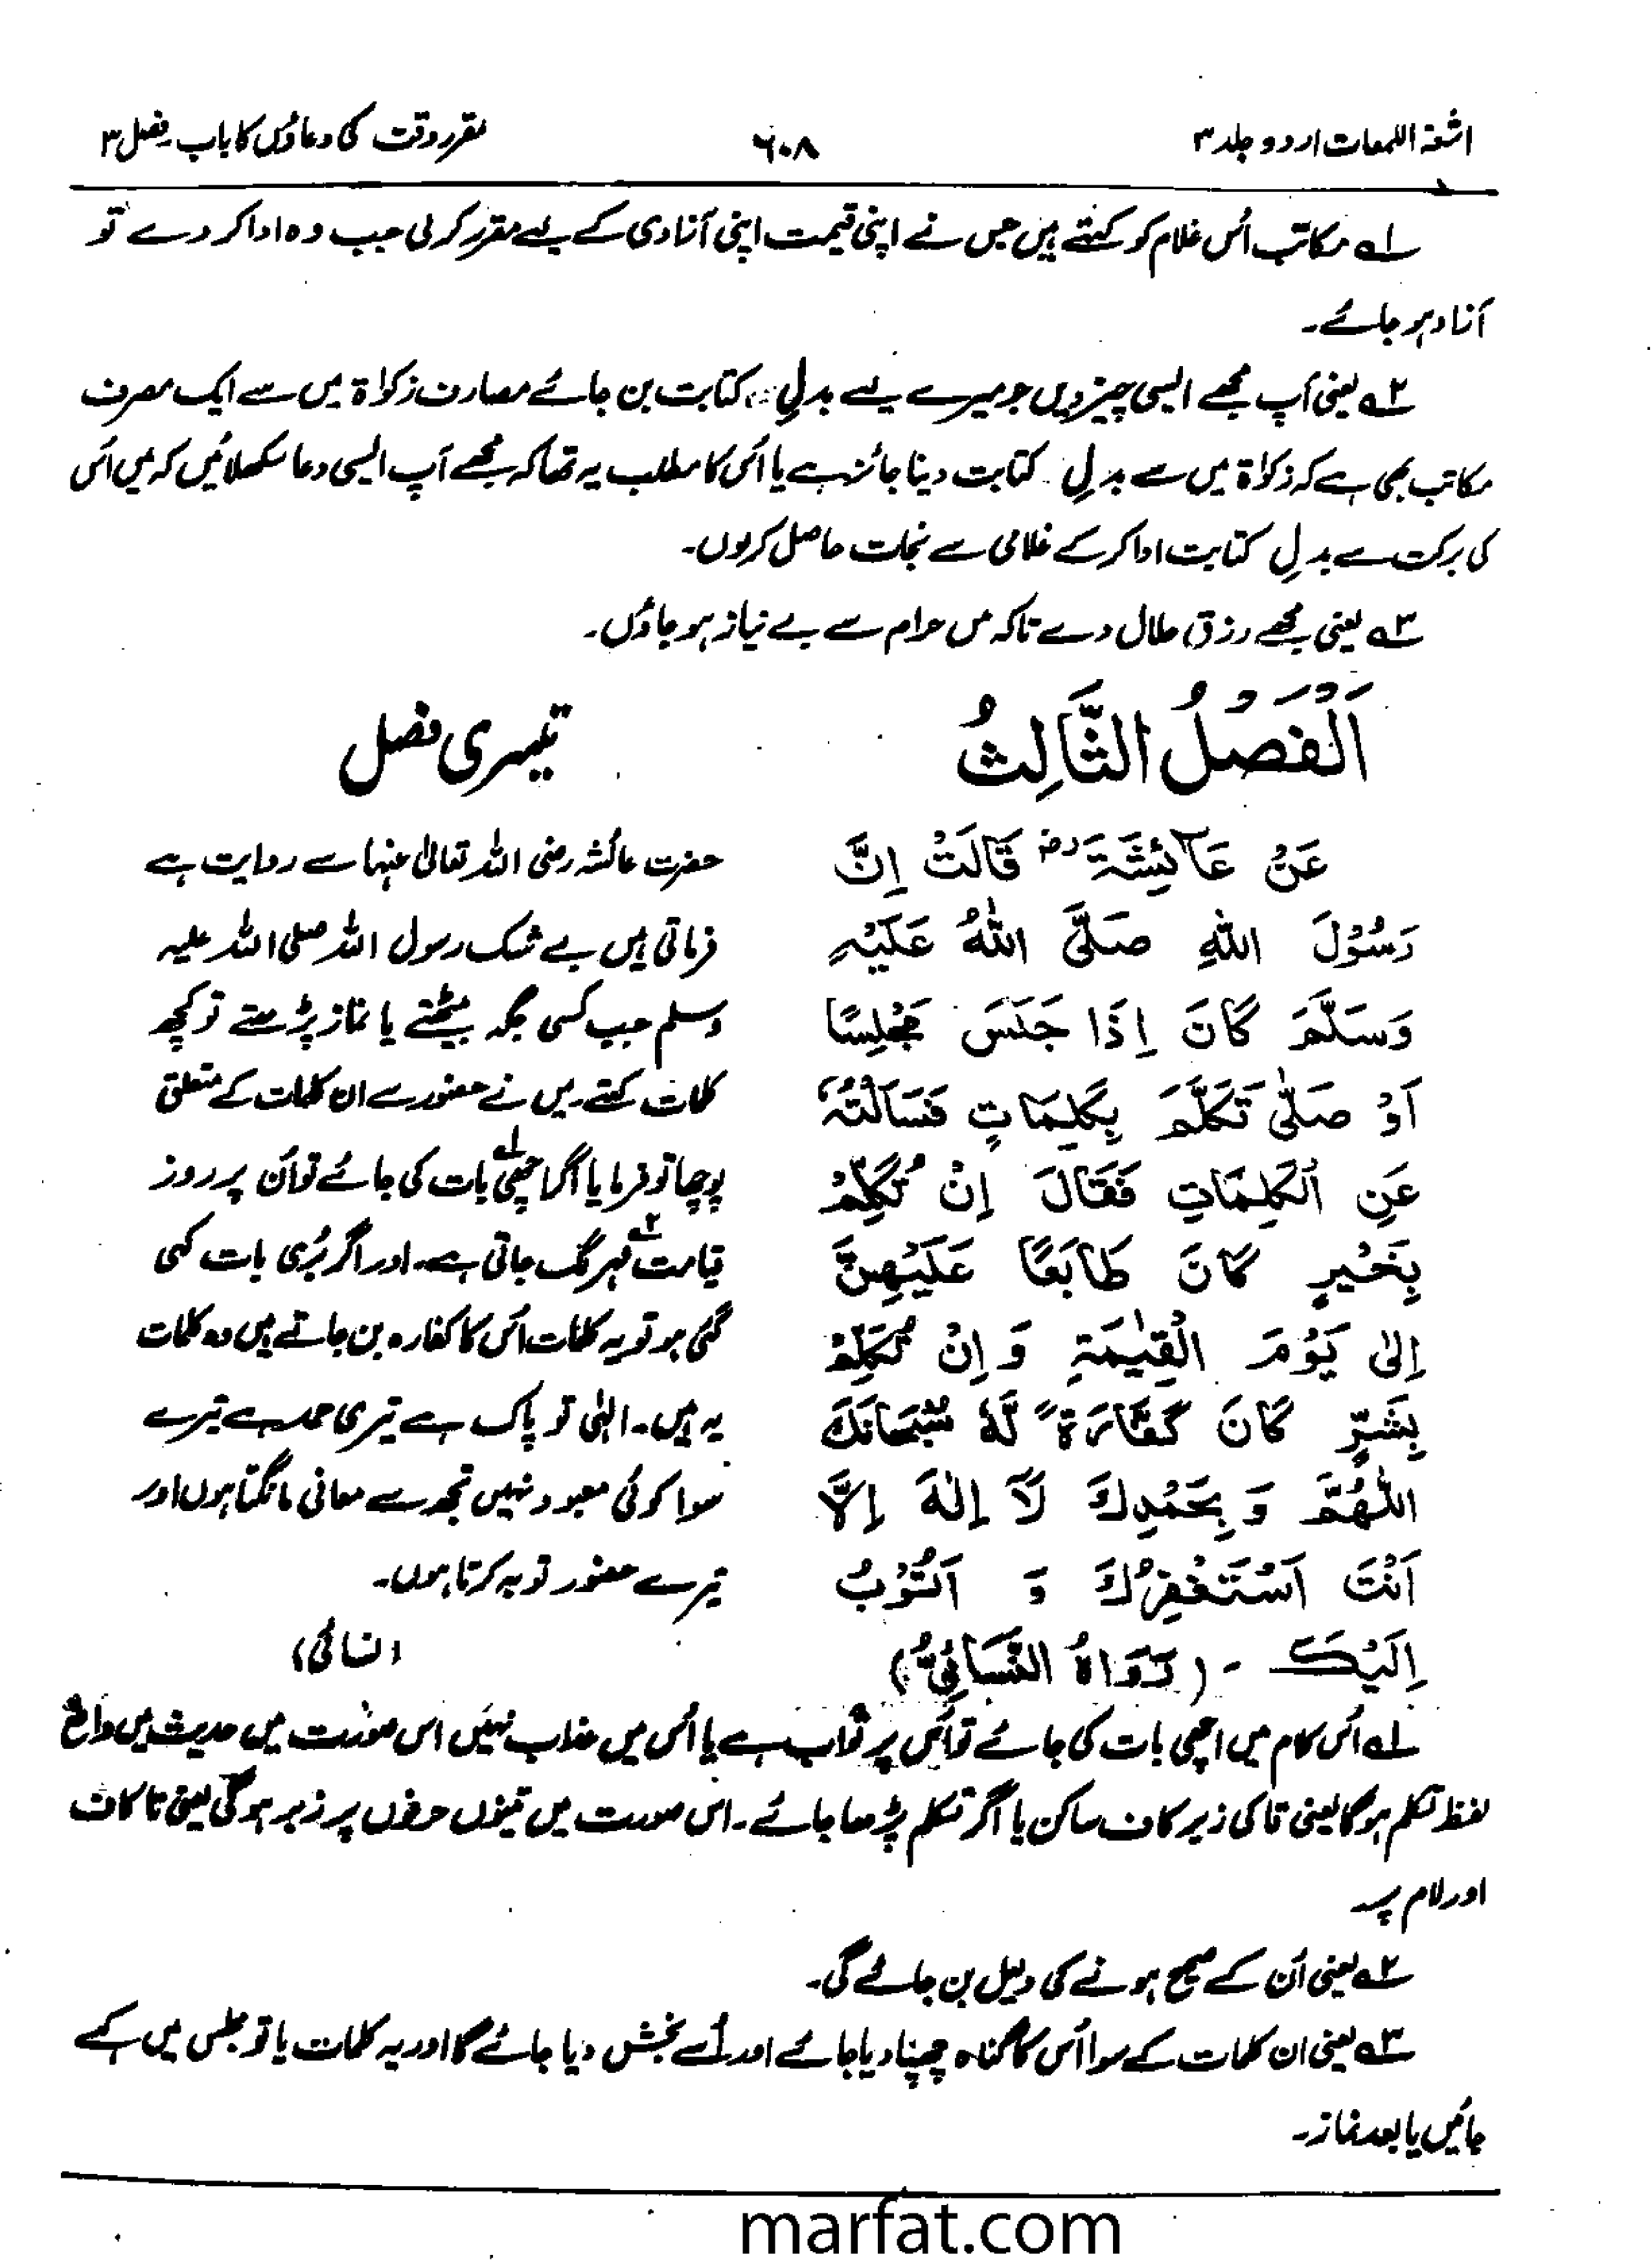 اشعۃ اللمعات اردو جلد ۳
۶۰۸
مقرر وقت کی دعاؤں کا باب ۔ فصل ۳
۱ مکاتب اُس غلام کو کہتے ہیں جس نے اپنی قیمت اپنی آزادی کے لیے مقرر کر لی جب وہ ادا کر دے تو
آزاد ہو جائے۔
۲ یعنی آپ مجھے ایسی چیز دیں جو میرے لیے بدلِ کتابت بن جائے مصارف زکوٰۃ میں سے ایک مصرف
مکاتب بھی ہے کہ زکوٰۃ میں سے بدلِ کتابت دینا جائز ہے یا اُس کا مطلب یہ تھا کہ مجھے آپ ایسی دعا سکھلائیں کہ میں اُس
کی برکت سے بدلِ کتابت ادا کر کے غلامی سے نجات حاصل کر لوں۔
۳ یعنی مجھے رزق حلال دے تاکہ میں حرام سے بے نیاز ہو جاؤں۔
اَلْفَصْلُ الثَّالِثُ
عَنْ عَآئِشَةَ رض قَالَتْ اِنَّ
رَسُوْلَ اللهِ صَلَّى اللهُ عَلَيْهِ
وَسَلَّمَ كَانَ اِذَا جَلَسَ مَجْلِسًا
اَوْ صَلّٰى تَكَلَّمَ بِكَلِمَاتٍ فَسَاَلْتُهٗ
عَنِ الْكَلِمَاتِ فَقَالَ اِنْ تُكَلِّمْ
بِخَيْرٍ كَانَ طَابَعًا عَلَيْهِنَّ
اِلٰى يَوْمَ الْقِيٰمَةِ وَ اِنْ تُكَلِّمْ
بِشَرٍّ كَانَ كَفَّارَةً لَّهٗ سُبْحَانَكَ
اللّٰهُمَّ وَ بِحَمْدِكَ لَآ اِلٰهَ اِلَّا
اَنْتَ اَسْتَغْفِرُكَ وَ اَتُوْبُ
اِلَيْكَ - (رَوَاهُ النَّسَائِيُّ)
تیسری فصل
حضرت عائشہ رضی اللہ تعالیٰ عنہا سے روایت ہے
فرماتی ہیں بے شک رسول اللہ صلی اللہ علیہ
وسلم جب کسی جگہ بیٹھتے یا نماز پڑھتے تو کچھ
کلمات کہتے۔ میں نے حضور سے ان کلمات کے متعلق
پوچھا تو فرمایا اگر اچھی۱ بات کی جائے تو اُن پر روز
قیامت۲ مہر لگ جاتی ہے۔ اور اگر بُری بات کہی
گئی ہو تو یہ کلمات اُس کا کفارہ بن جاتے ہیں وہ کلمات
یہ ہیں۔ الٰہی تو پاک ہے تیری حمد ہے تیرے
سوا کوئی معبود نہیں تجھ سے معافی مانگتا ہوں اور
تیرے حضور توبہ کرتا ہوں۔
(نسائی)
۱ اُس کام میں اچھی بات کی جائے تو اُس پر ثواب ہے یا اُس میں عذاب نہیں اس صورت میں حدیث میں واقع
لفظ تکلم ہو گا یعنی تا کی زبر کاف ساکن یا اگر تکلم پڑھا جائے۔ اس صورت میں تینوں حرفوں پر زبر ہو گی یعنی تا کاف
اور لام پر
۲ یعنی اُن کے صحیح ہونے کی دلیل بن جائے گی۔
۳ یعنی ان کلمات کے سوا اُس کا گناہ چھپا دیا جائے اور اُسے بخش دیا جائے گا اور یہ کلمات یا تو مجلس میں کہے
جائیں یا بعد نماز۔
marfat.com